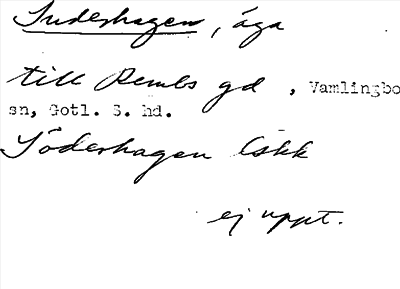 Suderhagen, äga
till Rembs gd, Vamlingbo
sn, Gotl. S. hd.
Söderhagen Eskk
ej uppt.